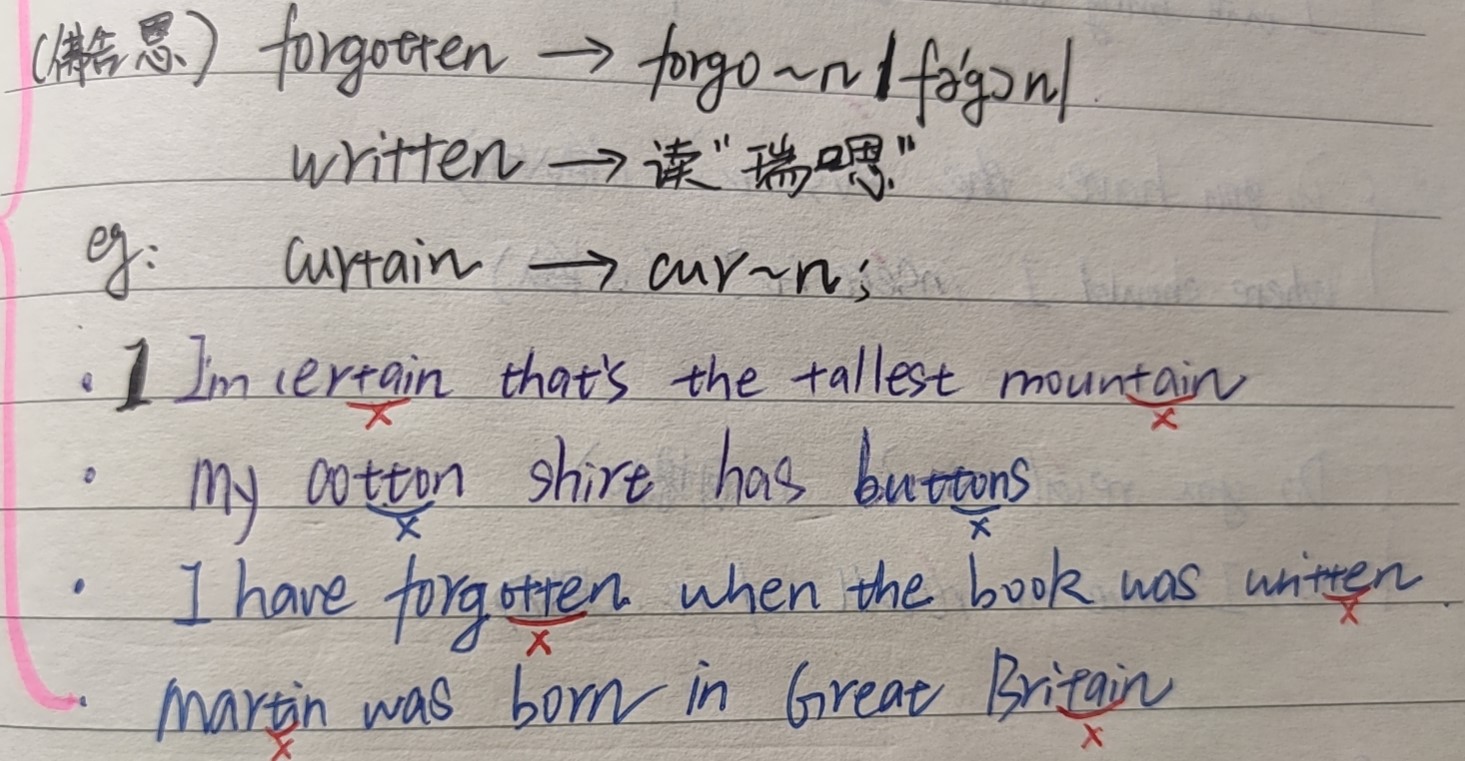 (佛告恩) forgotten → forgo~n /fə'gɔn/
written → 读"瑞嗯"
eg: curtain → cur~n;
· 1 I'm certain that's the tallest mountain
· My cotton shirt has buttons
· I have forgotten when the book was written.
· Martin was born in Great Britain